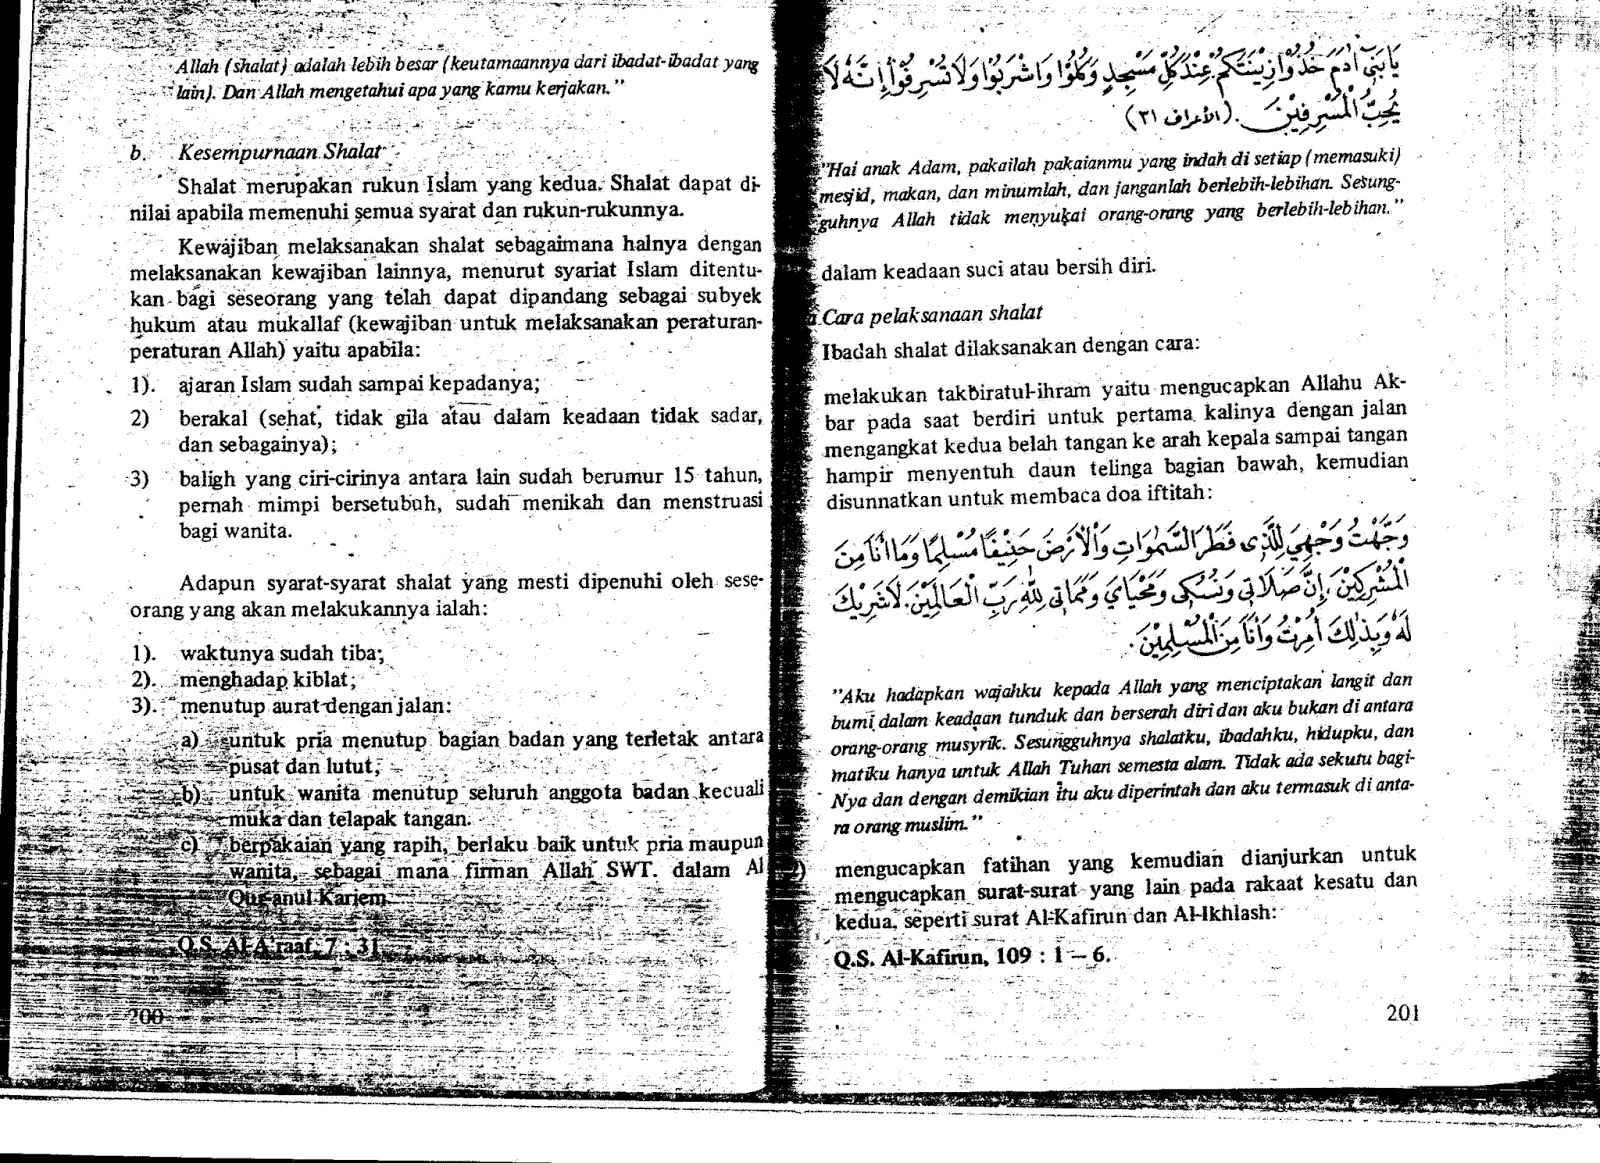 Allah (shalat) adalah lebih besar (keutamaannya dari ibadat-ibadat yang
lain). Dan Allah mengetahui apa yang kamu kerjakan."
b. Kesempurnaan Shalat
Shalat merupakan rukun Islam yang kedua. Shalat dapat di-
nilai apabila memenuhi semua syarat dan rukun-rukunnya.
Kewajiban melaksanakan shalat sebagaimana halnya dengan
melaksanakan kewajiban lainnya, menurut syariat Islam ditentu-
kan bagi seseorang yang telah dapat dipandang sebagai subyek
hukum atau mukallaf (kewajiban untuk melaksanakan peraturan-
peraturan Allah) yaitu apabila:
1). ajaran Islam sudah sampai kepadanya;
2) berakal (sehat, tidak gila atau dalam keadaan tidak sadar,
dan sebagainya);
3) baligh yang ciri-cirinya antara lain sudah berumur 15 tahun,
pernah mimpi bersetubuh, sudah menikah dan menstruasi
bagi wanita.
Adapun syarat-syarat shalat yang mesti dipenuhi oleh sese-
orang yang akan melakukannya ialah:
1). waktunya sudah tiba;
2). menghadap kiblat;
3). menutup aurat dengan jalan:
a) untuk pria menutup bagian badan yang terletak antara
pusat dan lutut;
b) untuk wanita menutup seluruh anggota badan kecuali
muka dan telapak tangan.
c) berpakaian yang rapih, berlaku baik untuk pria maupun
wanita, sebagai mana firman Allah SWT. dalam Al
Qur-anul Kariem
Q.S. Al-A'raaf, 7 : 31
200
يَابَنِيْ اٰدَمَ خُذُوْا زِيْنَتَكُمْ عِنْدَ كُلِّ مَسْجِدٍ وَكُلُوْا وَاشْرَبُوْا وَلَا تُسْرِفُوْا اِنَّهُ لَا
يُحِبُّ الْمُسْرِفِيْنَ . (الأعراف ٣١)
"Hai anak Adam, pakailah pakaianmu yang indah di setiap (memasuki)
mesjid, makan, dan minumlah, dan janganlah berlebih-lebihan. Sesung-
guhnya Allah tidak menyukai orang-orang yang berlebih-lebihan."
dalam keadaan suci atau bersih diri.
Cara pelaksanaan shalat
Ibadah shalat dilaksanakan dengan cara:
melakukan takbiratul-ihram yaitu mengucapkan Allahu Ak-
bar pada saat berdiri untuk pertama kalinya dengan jalan
mengangkat kedua belah tangan ke arah kepala sampai tangan
hampir menyentuh daun telinga bagian bawah, kemudian
disunnatkan untuk membaca doa iftitah:
وَجَّهْتُ وَجْهِيَ لِلَّذِى فَطَرَ السَّمٰوَاتِ وَالْاَرْضَ حَنِيْفًا مُسْلِمًا وَمَا اَنَا مِنَ
الْمُشْرِكِيْنَ ، اِنَّ صَلَاتِى وَنُسُكِى وَمَحْيَايَ وَمَمَاتِى لِلّٰهِ رَبِّ الْعَالَمِيْنَ . لَا شَرِيْكَ
لَهُ وَبِذٰلِكَ اُمِرْتُ وَاَنَا مِنَ الْمُسْلِمِيْنَ .
"Aku hadapkan wajahku kepada Allah yang menciptakan langit dan
bumi dalam keadaan tunduk dan berserah diri dan aku bukan di antara
orang-orang musyrik. Sesungguhnya shalatku, ibadahku, hidupku, dan
matiku hanya untuk Allah Tuhan semesta alam. Tidak ada sekutu bagi-
Nya dan dengan demikian itu aku diperintah dan aku termasuk di anta-
ra orang muslim."
mengucapkan fatihan yang kemudian dianjurkan untuk
mengucapkan surat-surat yang lain pada rakaat kesatu dan
kedua, seperti surat Al-Kafirun dan Al-Ikhlash:
Q.S. Al-Kafirun, 109 : 1 – 6.
201